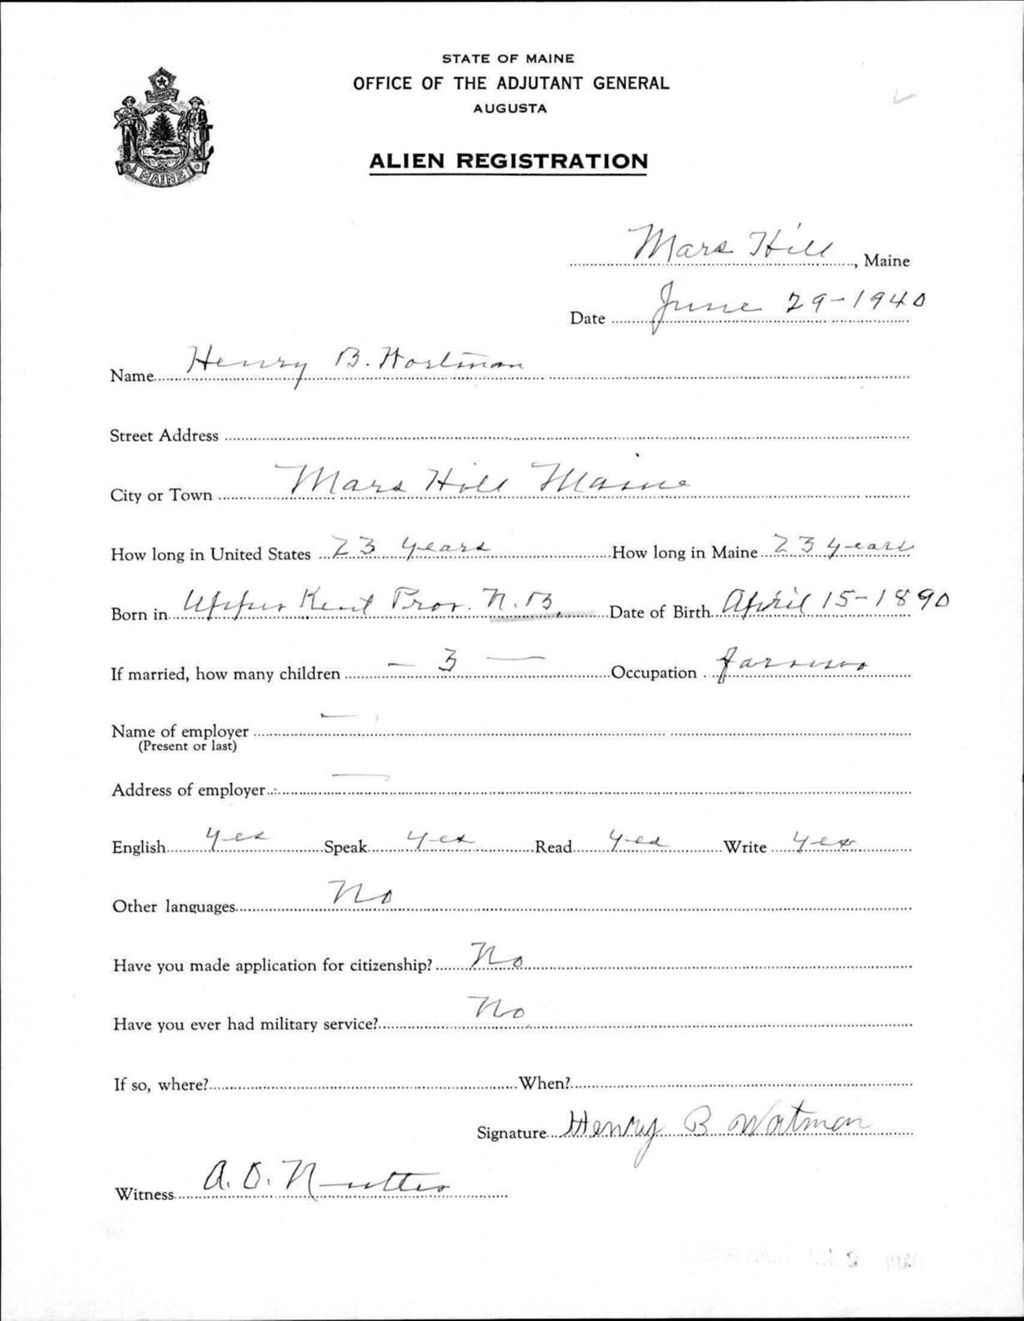 STATE OF MAINE
OFFICE OF THE ADJUTANT GENERAL
AUGUSTA
ALIEN REGISTRATION
MAINE
Mars Hill, Maine
Date June 29-1940
Name Henry B. Wortman
Street Address
City or Town Mars Hill Maine
How long in United States 23 years How long in Maine 23 years
Born in Upper Kent Prov. N.B. Date of Birth April 15-1890
If married, how many children - 3 - Occupation farmer
Name of employer -
(Present or last)
Address of employer -
English yes Speak yes Read yes Write yes
Other languages No
Have you made application for citizenship? No
Have you ever had military service? No
If so, where? When?
Signature Henry B Wortman
Witness A. O. Nutter